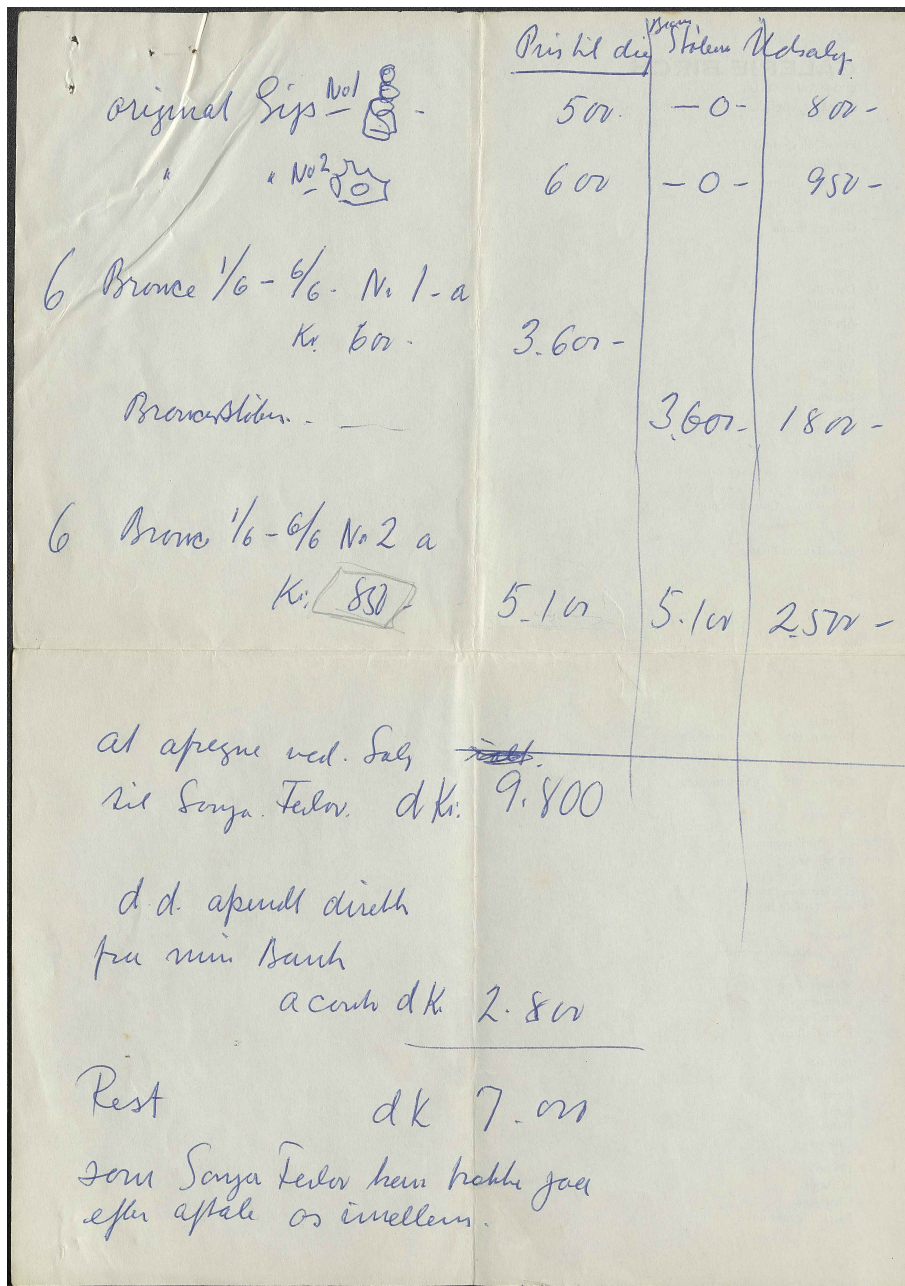 Pris til dig Bron Støberi Udsalg.
original Gips No1 - 500. - 0 - 800 -
" " No2 600 - 0 - 950 -
6 Bronce 1/6 - 6/6 - No 1 - a
Kr. 600 - 3.600 -
Broncestøber. - 3.600 - 1800 -
6 Bronce 1/6 - 6/6 No 2 a
Kr. 850 - 5.100 5.100 2.500 -
at afregne ved. Salg
til Sonja Ferlov. d Kr. 9.800
d.d. afsendt direkte
fra min Bank
aconto d K. 2.800
Rest d K 7.000
som Sonja Ferlov kan trække paa
efter aftale os imellem.